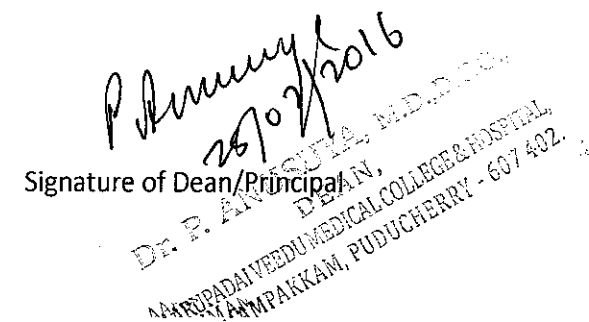 P. Anusuya
Signature of Dean/Principal
Dr. P. ANUSUYA, M.D.,D.G.O.,
DEAN,
AARUPADAI VEEDU MEDICAL COLLEGE & HOSPITAL,
PUDUCHERRY - 607 402.